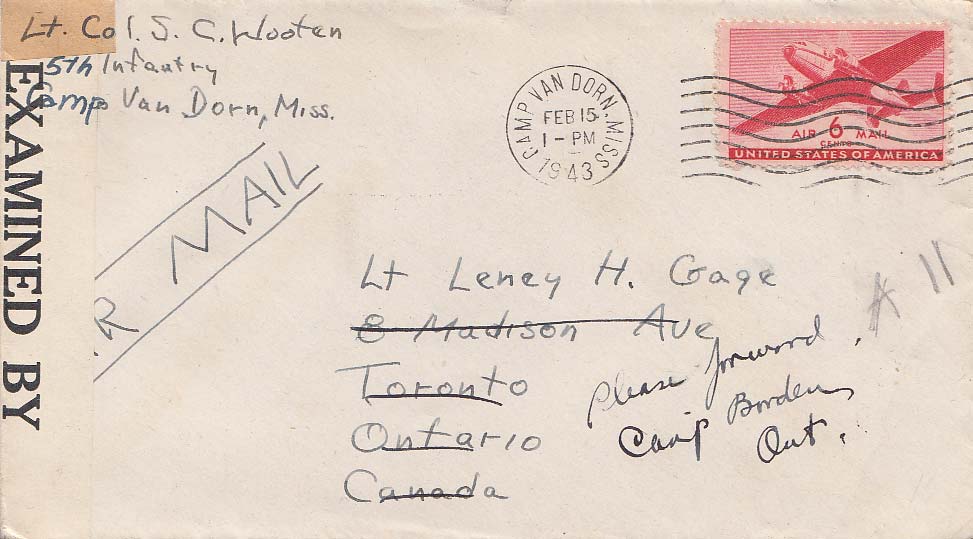 Lt. Col. S. C. Wooten
5th Infantry
Camp Van Dorn, Miss.
EXAMINED BY
R MAIL
CAMP VAN DORN, MISS
FEB 15
1 - PM
1943
AIR 6 MAIL
CENTS
UNITED STATES OF AMERICA
Lt Leney H. Gage
8 Madison Ave
Toronto
Ontario
Canada
Please forward
Camp Borden
Ont.